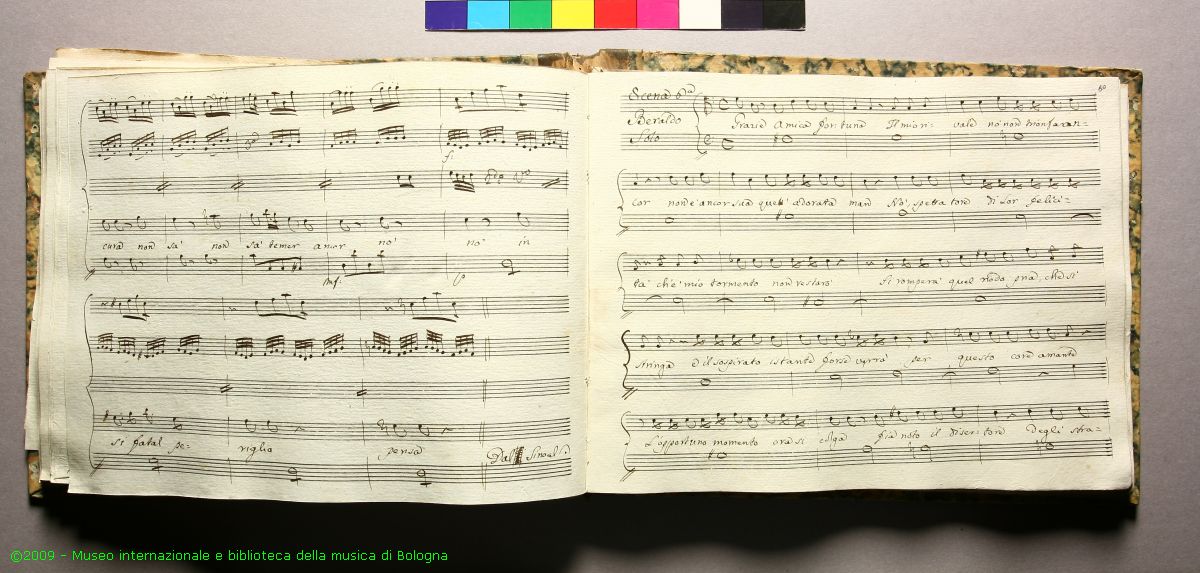 cura non sa' non sa' temer amor no' no' in
f:
mf:
si fatal pe- riglio pensa Dal Segno al
60
Scena 6a
Beraldo
Solo
Grazie Amica fortuna Il mio ri- vale no' non trionfa ran-
cor non e' ancor sua quell' adorata man No', spettatore di lor felici-
ta' che e' mio tormento non restaro' si rompera' quel nodo pria, che si
stringa e il sospirato istante forse verra' per questo core amante
L'opportuno momento ora si colga fia noto il disertore degli stra-
©2009 - Museo internazionale e biblioteca della musica di Bologna